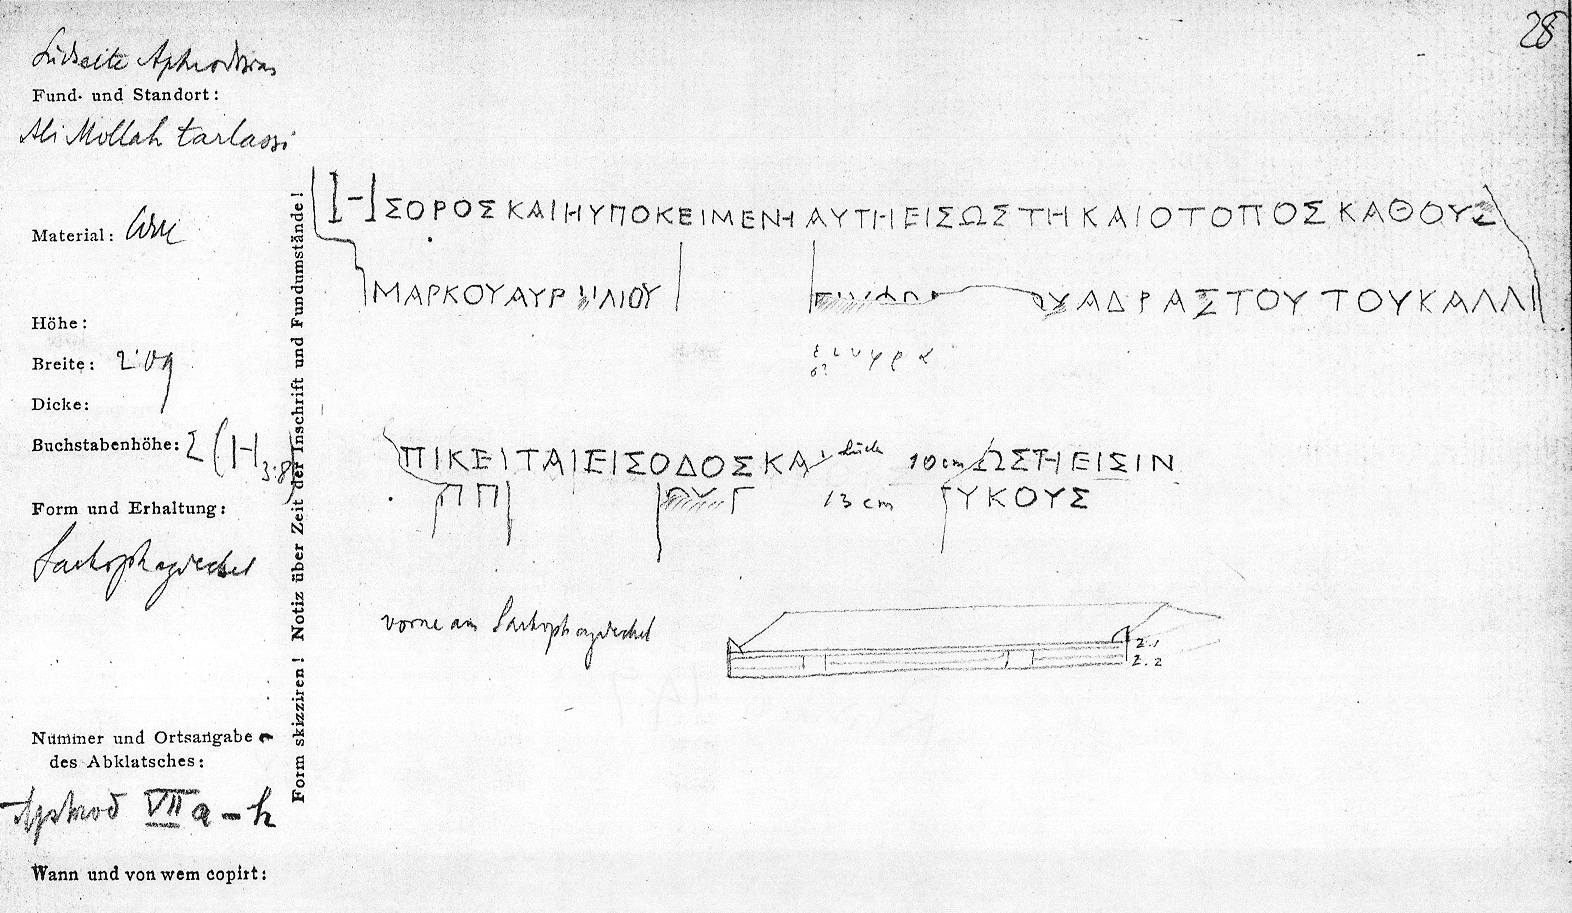 28
Südseite Aphrodisias
Fund- und Standort:
Ali Mollah tarlassi
Material:
Höhe:
Breite: 2·09
Dicke:
Buchstabenhöhe: Σ (Η 3·8)
Form und Erhaltung:
Sarkophagdeckel
Nummer und Ortsangabe
des Abklatsches:
Aphrod VII a–h
Wann und von wem copirt:
Form skizziren! Notiz über Zeit der Inschrift und Fundumstände!
ΗΣΟΡΟΣΚΑΙΗΥΠΟΚΕΙΜΕΝΗΑΥΤΗΕΙΣΩΣΤΗΚΑΙΟΤΟΠΟΣΚΑΘΟΥΣ
ΜΑΡΚΟΥΑΥΡΗΛΙΟΥ ΟΥΑΔΡΑΣΤΟΥΤΟΥΚΑΛΛΙ
ΠΙΚΕΙΤΑΙΕΙΣΟΔΟΣΚΑ Lücke 10 cm ΩΣΤΗΕΙΣΙΝ
ΠΠ ΟΥΓ 13 cm ΥΚΟΥΣ
vorne am Sarkophagdeckel
2.1
2.2